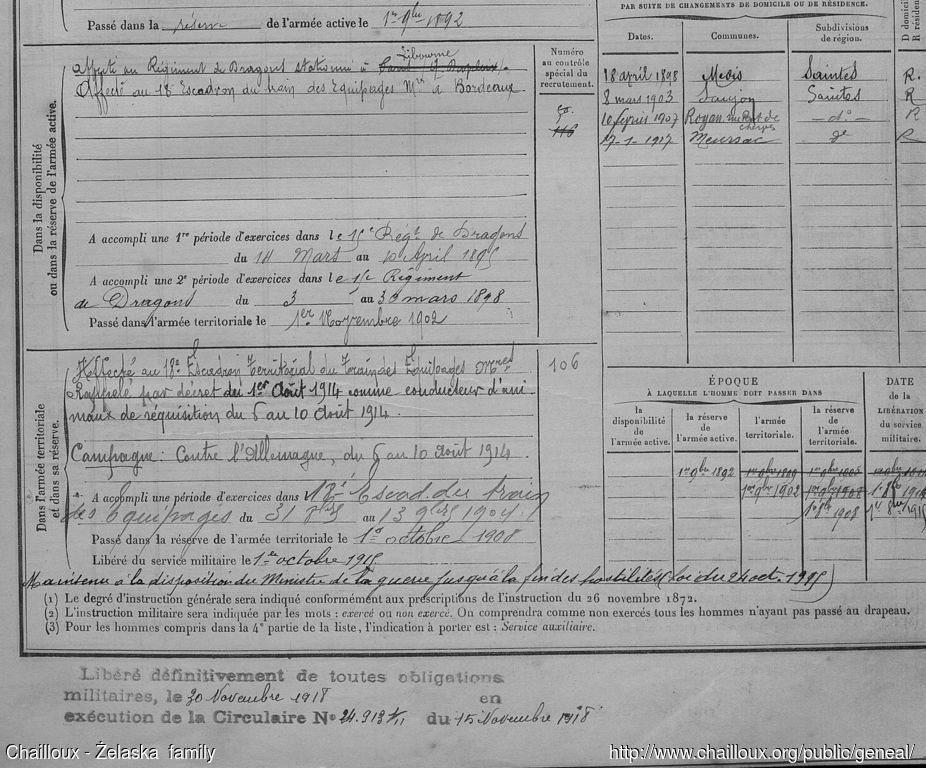 Passé dans la réserve de l'armée active le 1er 9bre 1892
Dans la disponibilité
ou dans la réserve de l'armée active.
Affecté au Régiment de Dragons stationné à Libourne
Affecté au 18e Escadron du train des Equipages Mres à Bordeaux
A accompli une 1re période d'exercices dans le 15e Régt de Dragons
du 14 Mars au 10 April 1895
A accompli une 2e période d'exercices dans le 15e Régiment
de Dragons du 3 au 30 mars 1898
Passé dans l'armée territoriale le 1er Novembre 1902
Numéro
au contrôle
spécial du
recrutement.
116
PAR SUITE DE CHANGEMENTS DE DOMICILE OU DE RÉSIDENCE.
Dates. Communes. Subdivisions
de région. D domicile
R résidence
18 avril 1898 Médis Saintes R.
8 mars 1903 Saujon Saintes R
10 février 1907 Royan —do— R
17-1-1917 Meursac do R
Dans l'armée territoriale
et dans sa réserve.
Affecté au 18e Escadron Territorial du Train des Equipages Mres
106
Rappelé par décret du 1er Août 1914 comme conducteur d'ani
maux de réquisition du 6 au 10 Août 1914.
Campagne: Contre l'Allemagne, du 6 au 10 Août 1914
A accompli une période d'exercices dans le 18e Escad. du train
des Equipages du 31 8bre au 13 9bre 1904
Passé dans la réserve de l'armée territoriale le 1er octobre 1908
Libéré du service militaire le 1er octobre 1915
Maintenu à la disposition du Ministre de la guerre jusqu'à la fin des hostilités (loi du 24 oct. 1915)
ÉPOQUE
À LAQUELLE L'HOMME DOIT PASSER DANS
la
disponibilité
de
l'armée active.
la réserve
de
l'armée active.
l'armée
territoriale.
la réserve
de
l'armée
territoriale.
DATE
de la
LIBÉRATION
du service
militaire.
1er 9bre 1892
1er 9bre 1902 1er 9bre 1908
1er 8bre 1908 1er 8bre 1915
(1) Le degré d'instruction générale sera indiqué conformément aux prescriptions de l'instruction du 26 novembre 1872.
(2) L'instruction militaire sera indiquée par les mots : exercé ou non exercé. On comprendra comme non exercés tous les hommes n'ayant pas passé au drapeau.
(3) Pour les hommes compris dans la 4e partie de la liste, l'indication à porter est : Service auxiliaire.
Libéré définitivement de toutes obligations
militaires, le 30 Novembre 1918 en
exécution de la Circulaire No 24.913 1/11 du 15 Novembre 1918
Chailloux - Żelaska family
http://www.chailloux.org/public/geneal/